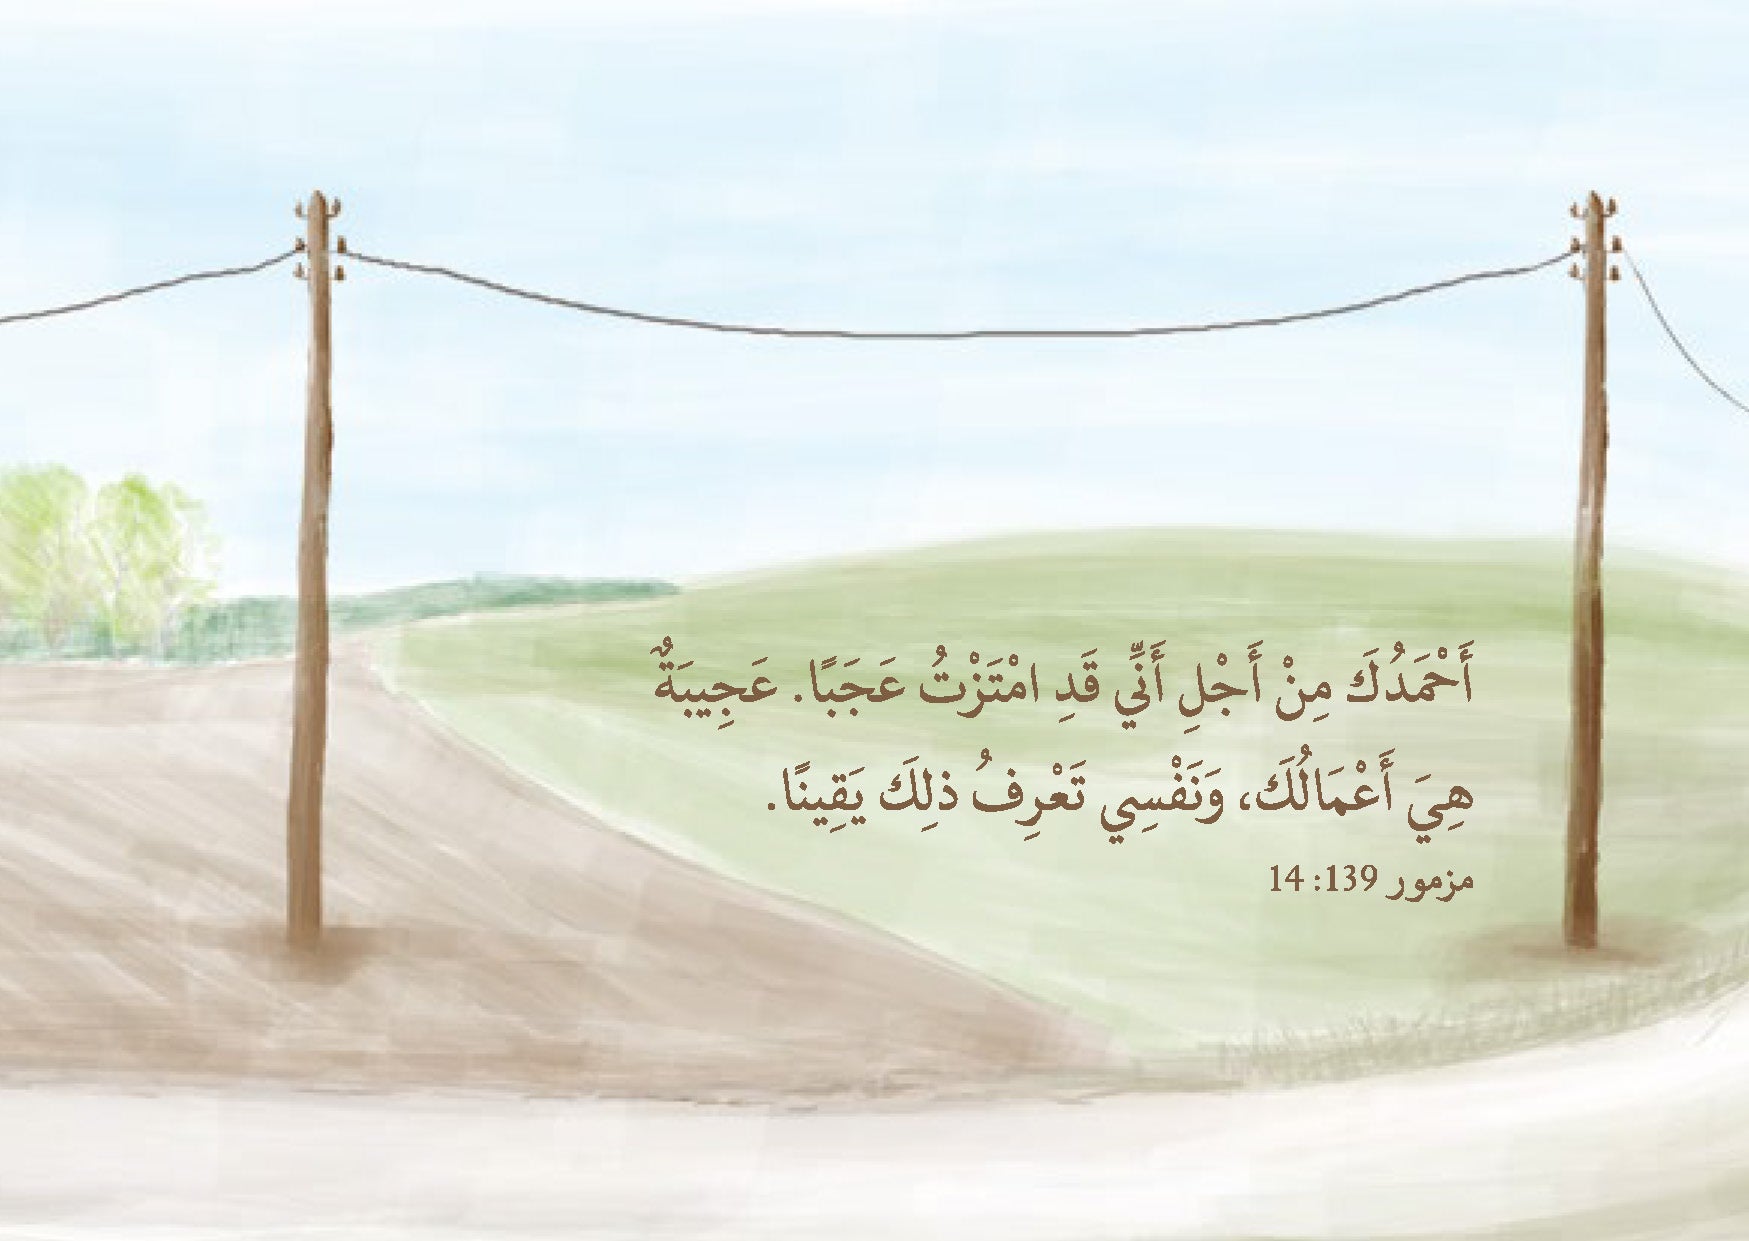 أَحْمَدُكَ مِنْ أَجْلِ أَنِّي قَدِ امْتَزْتُ عَجَبًا. عَجِيبَةٌ
هِيَ أَعْمَالُكَ، وَنَفْسِي تَعْرِفُ ذلِكَ يَقِينًا.
مزمور 139: 14